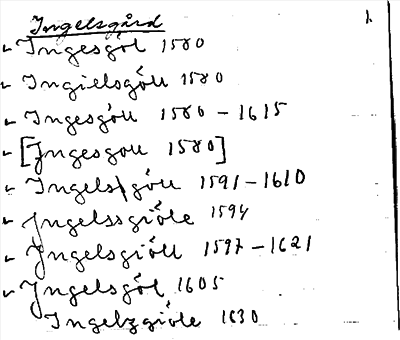 Ingelsgård 1.
Ingesgöl 1580
Ingielsgöll 1580
Ingesgöll 1580 - 1615
[Jngesgoll 1580]
Ingels göll 1591 - 1610
Jngelssgiöle 1594
Jngelsgiöll 1597 - 1621
Jngelsgöl 1605
Ingelzgiöle 1630